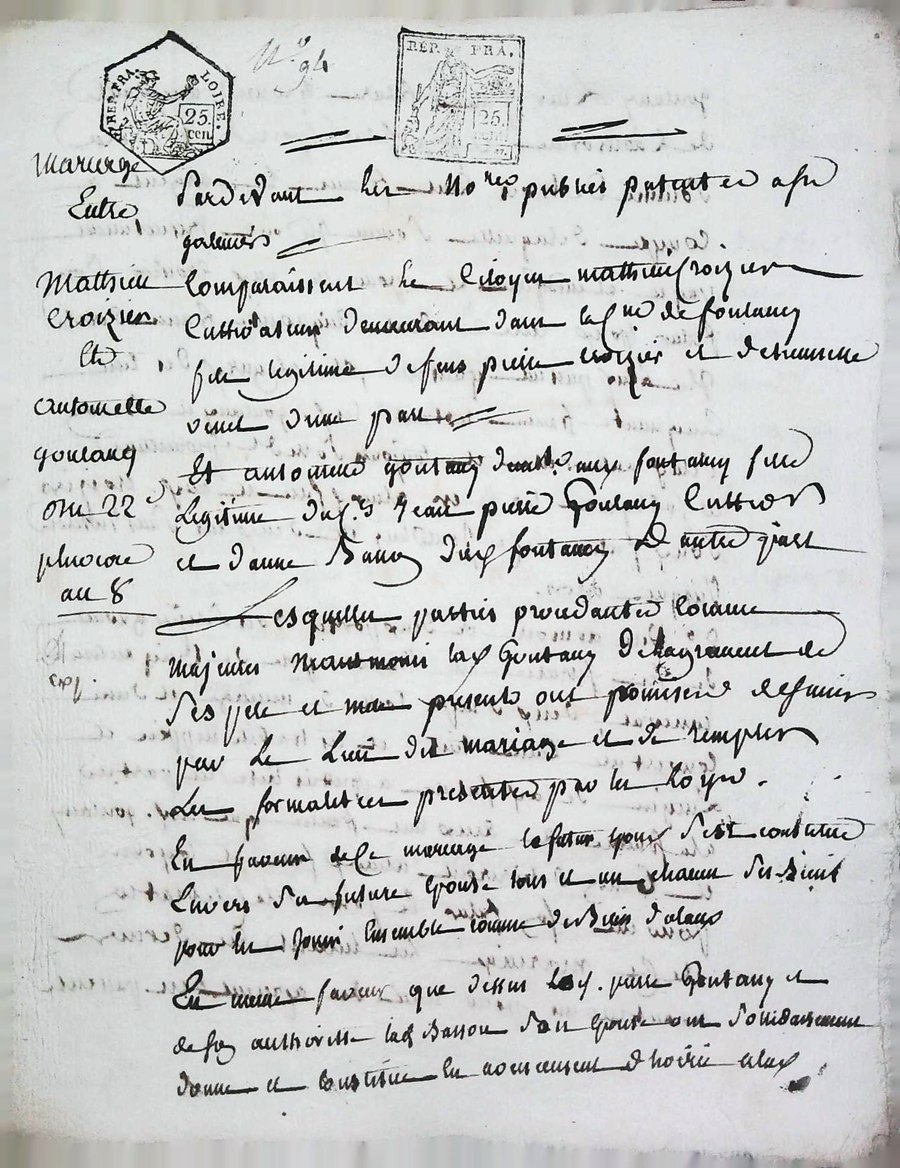 REP. FRA. LOIRE.
25. cen.
N.o 94
REP. FRA.
25.
mariage
Entre
Mathieu
Croizier
Et
antoinette
goutany
du 22e
pluviose
an 8
exp.
Pardevant les No.res publics patentés a St
galmier
Comparaissent le Citoyen mathieu Croizier
Cultivateur demeurant dans la Cne de fontaney
fils legitime de feus pierre Croizier et d'etiennette
d'une part
Et antoinette goutany demte. aux fontaney fille
Legitime du C. Jean pierre Goutany Cultier
et d'anne Basson fontaney d'autre part
Lesquelles parties procedantes comme
majeures lad Goutany de l'agrement de
ses pere et mere presents ont promis de s'unir
par le Lien du mariage et de remplir
Les formalites presentées par les Loyx.
En faveur de ce mariage le futur Epoux s'est constitué
Envers sa future Epouse tous et un chacun ses Biens
pour les Jouir Ensemble comme de Biens dotaux
En meme faveur que dessus led. pierre Goutany et
de son authorité lad Basson son Epouse ont solidairement
donné et Constitué En avancement d'hoirie alad